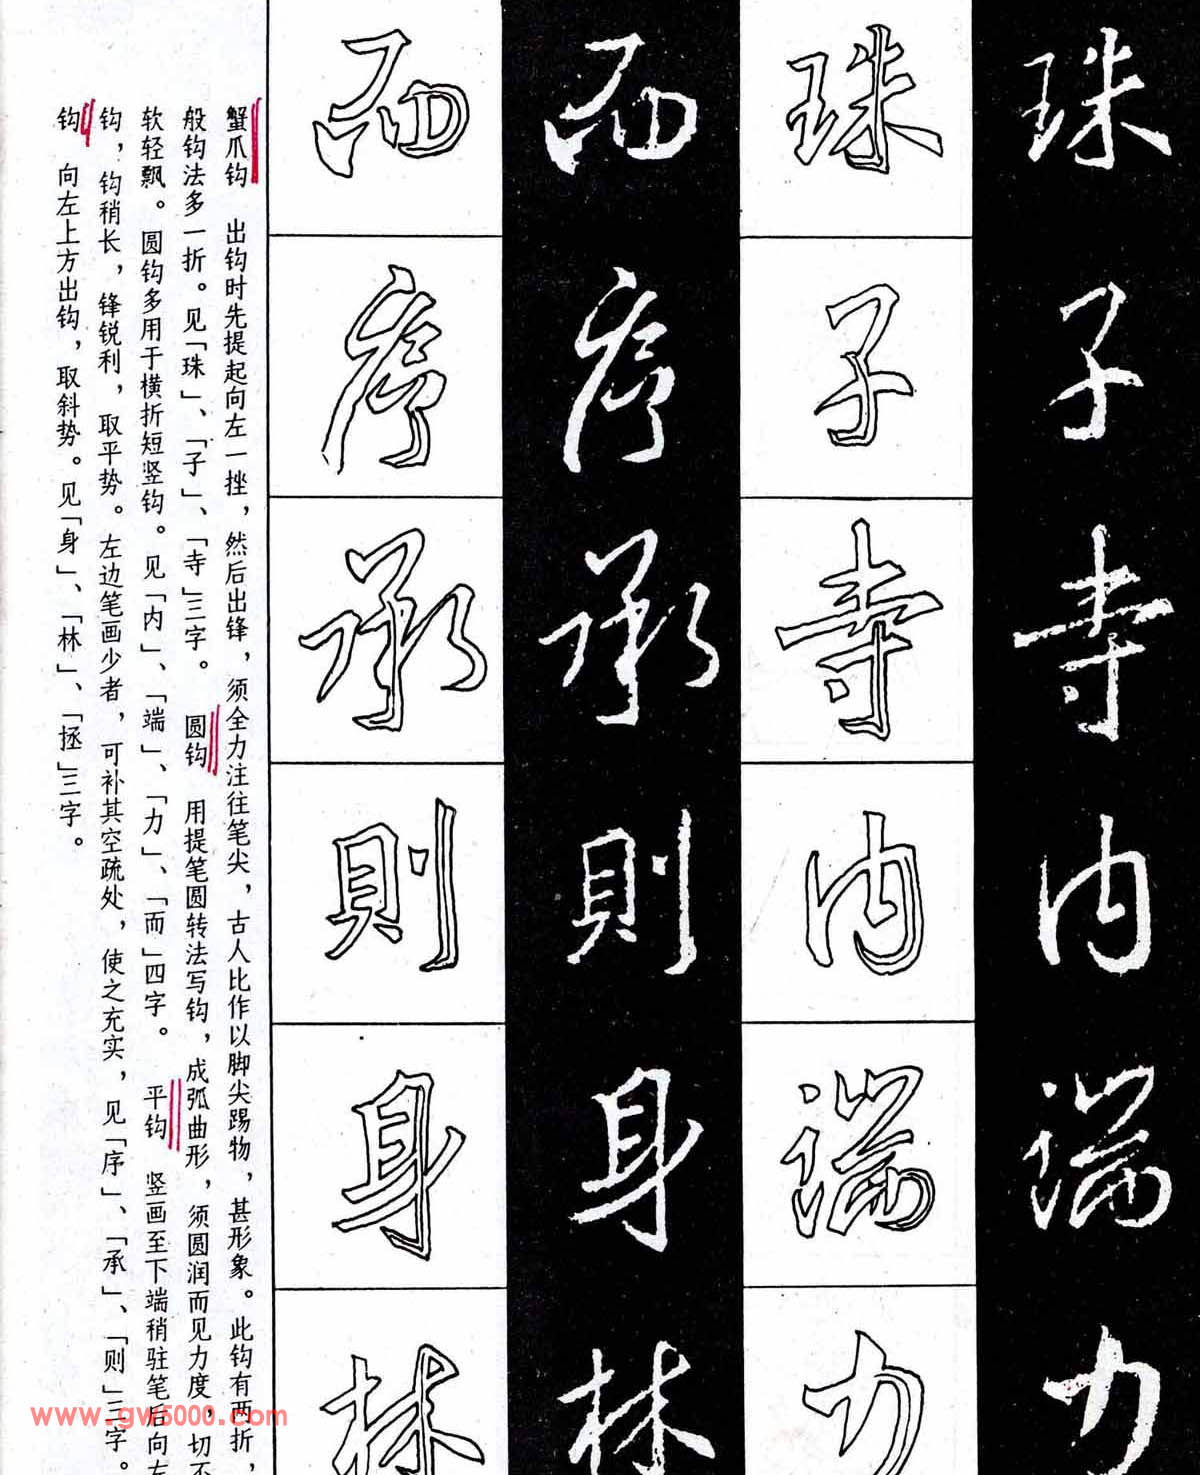 珠子寺内端力
珠子寺内端力
而序承則身林
而序承則身林
蟹爪钩 出钩时先提起向左一挫，然后出锋，须全力注往笔尖，古人比作以脚尖踢物，甚形象。此钩有两折，
般钩法多一折。见「珠」、「子」、「寺」三字。 圆钩 用提笔圆转法写钩，成弧曲形，须圆润而见力度，切不
软轻飘。圆钩多用于横折短竖钩。见「内」、「端」、「力」、「而」四字。 平钩 竖画至下端稍驻笔后向左
钩，钩稍长，锋锐利，取平势。左边笔画少者，可补其空疏处，使之充实，见「序」、「承」、「则」三字。
钩 向左上方出钩，取斜势。见「身」、「林」、「拯」三字。
www.gw5000.com